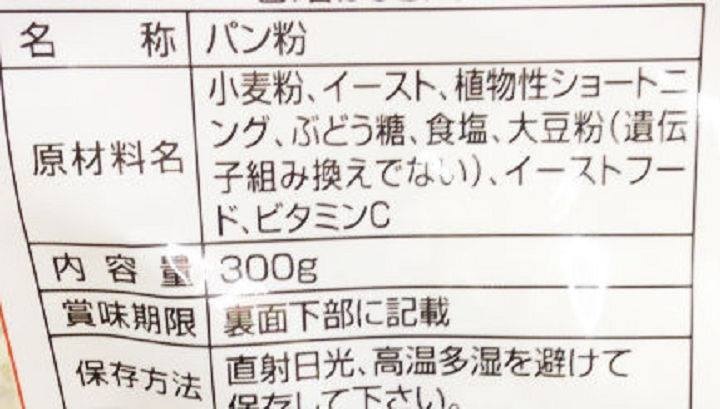 名 称 パン粉
原材料名
小麦粉、イースト、植物性ショートニ
ング、ぶどう糖、食塩、大豆粉(遺伝
子組み換えでない)、イーストフー
ド、ビタミンC
内容量 300g
賞味期限 裏面下部に記載
保存方法
直射日光、高温多湿を避けて
保存して下さい。